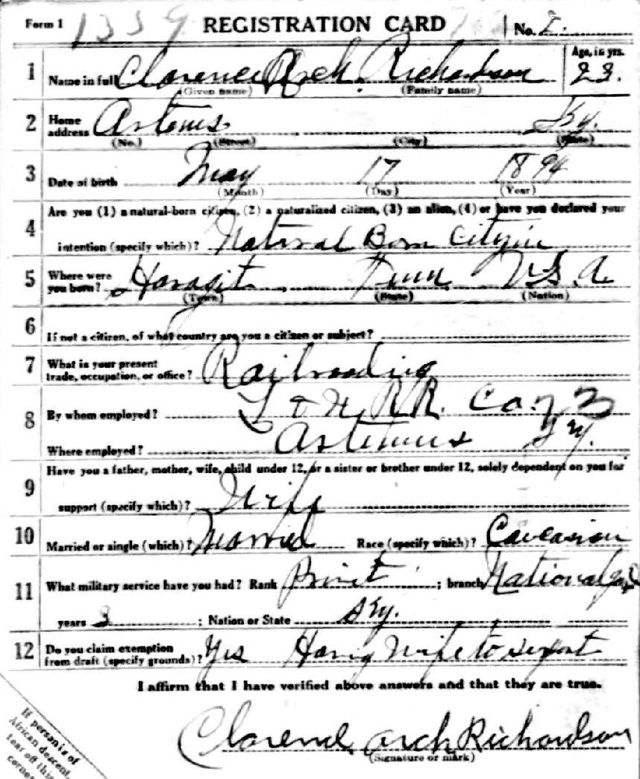 Form 1 1339 REGISTRATION CARD No. 2.
1 Name in full Clarence Arch. Richardson Age, in yrs. 23.
(Given name) (Family name)
2 Home address Artemus Ky.
(No.) (Street) (City) (State)
3 Date of birth May 17 1894
(Month) (Day) (Year)
4 Are you (1) a natural-born citizen, (2) a naturalized citizen, (3) an alien, (4) or have you declared your
intention (specify which)? Natural Born
5 Where were you born? Tenn U.S.A.
(Town) (State) (Nation)
6 If not a citizen, of what country are you a citizen or subject?
7 What is your present trade, occupation, or office? Railroading
8 By whom employed? L & N. R.R. Co.
Where employed? Artemus Ky.
9 Have you a father, mother, wife, child under 12, or a sister or brother under 12, solely dependent on you for
support (specify which)? Wife
10 Married or single (which)? Married Race (specify which)? Caucasian
11 What military service have you had? Rank ; branch National
years 3 ; Nation or State Ky.
12 Do you claim exemption from draft (specify grounds)? Yes Wife to
I affirm that I have verified above answers and that they are true.
Clarence Arch Richardson
(Signature or mark)
If person is of
African descent,
tear off this
corner